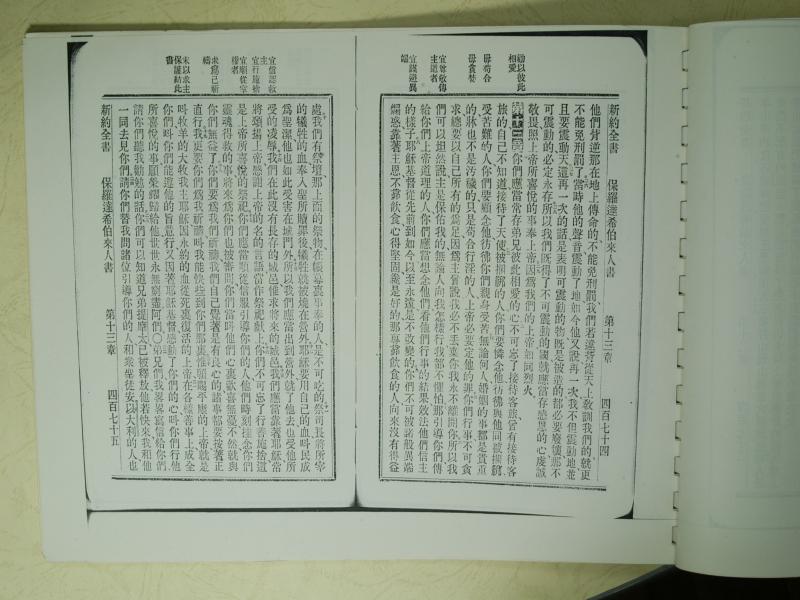 新約全書 保羅達希伯來人書 第十三章 四百七十四
勸以彼此相愛
毋苟合
毋貪婪
宜曾敬傳主道者
宜謹避異端
他們背逆那在地上傳命的不能免刑罰我們若違背從天上敎訓我們的就更
不能免刑罰了當時他的聲音震動了地如今他又說再一次我不但震動地並
且要震動天這再一次的話是表明可震動的物旣是被造的都必要廢壞那不
可震動的必定永存所以我們旣得了不可震動的國就應當存感恩的心虔誠
敬畏照上帝所喜悅的事奉上帝因爲我們的上帝如同烈火
第十三章你們應當常存弟兄彼此相愛的心不可忘了接待客旅曾有接待客
旅的自己不知道接待了天使被捆綁的人你們要憐念他彷彿與他同被捆綁
受苦難的人你們要顧念他彷彿你們親身受苦無論何人婚姻的事都是貴重
的牀也不是污穢的只是苟合行淫的人上帝必要定他的罪你們行事不可貪
求總要以自己所有的爲足因爲主曾說我必不丟棄你我永不離開你所以我
們可以坦然說主是保佑我的無論人向我怎樣行我都不懼怕那引導你們傳
給你們上帝道理的人你們應當想念他們看他們行事的結果效法他們信主
的樣子耶穌基督從先前到如今以至永遠是不改變的你們不可被諸般異端
煽惑靠著主恩不靠飲食心得堅固纔是好的那專靠飲食的人向來沒有得益
宜當認救主
宜行施捨
宜順從宰權者
求爲己祈禱
末以求主保護結此書
處我們有祭壇那上面的祭物在帳幕裏事奉的人是不可吃的祭司長將所宰
的犧牲的血奉入聖所贖罪後犧牲就被燒在營外耶穌要用自己的血叫民成
爲聖潔他也如此受害在城門外所以我們應當出到營外就了他去也受他所
受的凌辱我們在此沒有長存的城邑惟求將來的城邑我們應當靠著耶穌常
將頌揚上帝感謝上帝的名的言語當作祭祀獻上你們不可忘了行善施捨這
是上帝所喜悅的祭祀你們應當順從信服引導你們的人他們時刻挂念你們
靈魂得救的事將來爲你們也被審問你們當叫他們心裏歡喜無憂不然就與
你們無益了你們要爲我們祈禱我們自己覺著是有良心的諸事都要按著正
直行我更要你們爲我祈禱叫我能快些到你們那裏惟願賜平康的上帝就是
叫牧羊的大牧我主耶穌因永約的血從死裏復活的上帝在各樣善事上成全
你們叫你們能遵他的旨意行又因著耶穌基督感動了你們的心叫你們行他
所喜悅的事願榮耀歸給他世世永無窮盡阿們○弟兄我畧畧寫信給你們
請你們聽我勸勉的話你們可以知道兄弟提摩太已被釋放他若快來我和他
一同去見你們請你們替我問諸位引導你們的人和衆聖徒安以大利的人也
新約全書 保羅達希伯來人書 第十三章 四百七十五